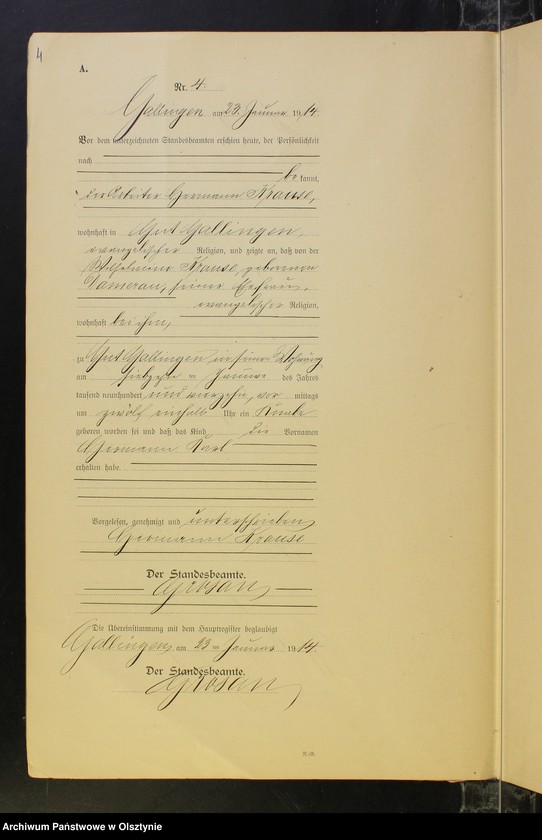 4
A.
Nr. 4.
Gallingen am 23. Januar 1914.
Vor dem unterzeichneten Standesbeamten erschien heute, der Persönlichkeit
nach
bekannt,
der Arbeiter Hermann Krause,
wohnhaft in Gut Gallingen,
evangelischer Religion, und zeigte an, daß von der
Wilhelmine Krause, geborenen
Tomerau, seiner Ehefrau,
evangelischer Religion,
wohnhaft bei ihm,
zu Gut Gallingen in seiner Wohnung
am siebzehnten Januar des Jahres
tausend neunhundert und vierzehn, vor mittags
um zwölf einhalb Uhr ein Knabe
geboren worden sei und daß das Kind die Vornamen
Hermann Karl
erhalten habe.
Vorgelesen, genehmigt und unterschrieben
Hermann Krause
Der Standesbeamte.
Grosan
Die Übereinstimmung mit dem Hauptregister beglaubigt
Gallingen, am 23ten Januar 1914.
Der Standesbeamte.
Grosan
Archiwum Państwowe w Olsztynie